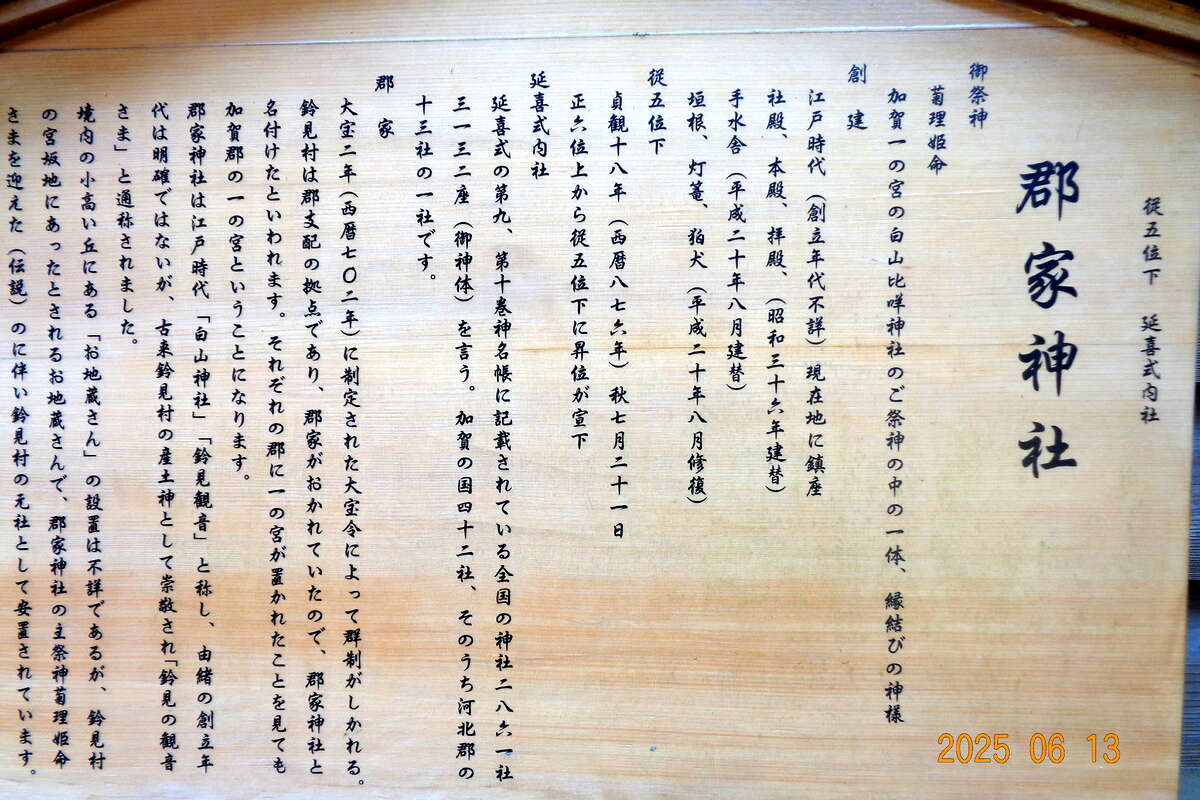 従五位下　延喜式内社
郡家神社
御祭神
菊理姫命
加賀一の宮の白山比咩神社のご祭神の中の一体、縁結びの神様
創　建
江戸時代（創立年代不詳）現在地に鎮座
社殿、本殿、拝殿、（昭和三十六年建替）
手水舎（平成二十年八月建替）
垣根、灯篭、狛犬（平成二十年八月修復）
従五位下
貞観十八年（西暦八七六年）秋七月二十一日
正六位上から従五位下に昇位が宣下
延喜式内社
延喜式の第九、第十巻神名帳に記載されている全国の神社二八六一社
三一三二座（御神体）を言う。加賀の国四十二社、そのうち河北郡の
十三社の一社です。
郡　家
大宝二年（西暦七〇二年）に制定された大宝令によって群制がしかれる。
鈴見村は郡支配の拠点であり、郡家がおかれていたので、郡家神社と
名付けたといわれます。それぞれの郡に一の宮が置かれたことを見ても
加賀郡の一の宮ということになります。
郡家神社は江戸時代「白山神社」「鈴見観音」と称し、由緒の創立年
代は明確ではないが、古来鈴見村の産土神として崇敬され「鈴見の観音
さま」と通称されました。
境内の小高い丘にある「お地蔵さん」の設置は不詳であるが、鈴見村
の宮坂地にあったとされるお地蔵さんで、郡家神社の主祭神菊理姫命
さまを迎えた（伝説）のに伴い鈴見村の元社として安置されています。
2025 06 13